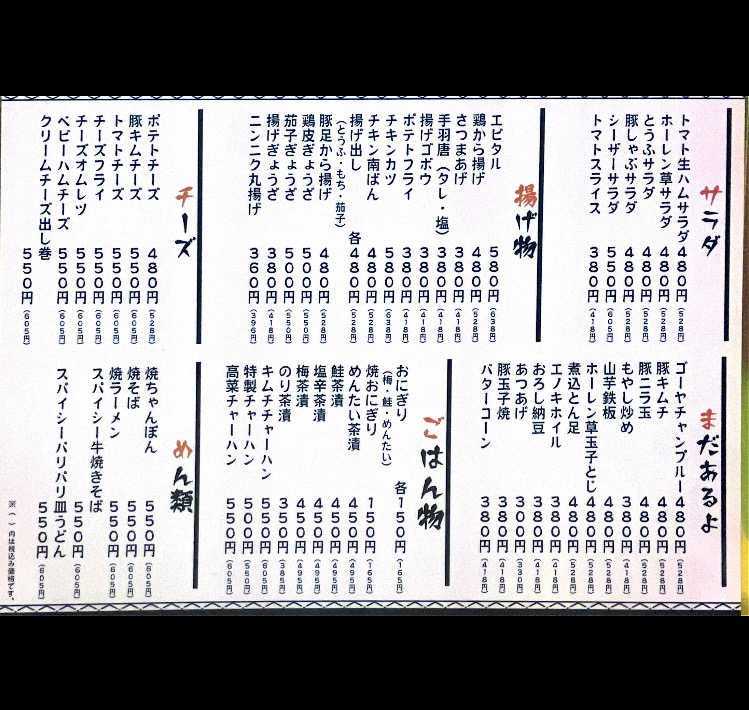 サラダ
トマト生ハムサラダ 480円(528円)
ホーレン草サラダ 480円(528円)
とうふサラダ 480円(528円)
豚しゃぶサラダ 480円(528円)
シーザーサラダ 550円(605円)
トマトスライス 380円(418円)
揚げ物
エビタル 580円(638円)
鶏から揚げ 480円(528円)
さつまあげ 380円(418円)
手羽唐(タレ・塩) 380円(418円)
揚げゴボウ 380円(418円)
ポテトフライ 380円(418円)
チキンカツ 580円(638円)
チキン南ばん 480円(528円)
揚げ出し 各480円(528円)
(とうふ・もち・茄子)
豚足から揚げ 480円(528円)
鶏皮ぎょうざ 500円(550円)
茄子ぎょうざ 500円(550円)
揚げぎょうざ 380円(418円)
ニンニク丸揚げ 360円(396円)
チーズ
ポテトチーズ 480円(528円)
豚キムチーズ 550円(605円)
トマトチーズ 550円(605円)
チーズフライ 550円(605円)
チーズオムレツ 550円(605円)
ベビーハムチーズ 550円(605円)
クリームチーズ出し巻 550円(605円)
まだあるよ
ゴーヤチャンプルー 480円(528円)
豚キムチ 480円(528円)
豚ニラ玉 480円(528円)
もやし炒め 380円(418円)
山芋鉄板 480円(528円)
ホーレン草玉子とじ 480円(528円)
煮込とん足 480円(528円)
エノキホイル 380円(418円)
おろし納豆 380円(418円)
あつあげ 300円(330円)
豚玉子焼 380円(418円)
バターコーン 380円(418円)
ごはん物
おにぎり 各150円(165円)
(梅・鮭・めんたい)
焼おにぎり 150円(165円)
めんたい茶漬 450円(495円)
鮭茶漬 450円(495円)
塩辛茶漬 450円(495円)
梅茶漬 450円(495円)
のり茶漬 350円(385円)
キムチチャーハン 550円(605円)
特製チャーハン 500円(550円)
高菜チャーハン 550円(605円)
めん類
焼ちゃんぽん 550円(605円)
焼そば 550円(605円)
焼ラーメン 550円(605円)
スパイシー牛焼きそば 550円(605円)
スパイシーパリパリ皿うどん 550円(605円)
※( )内は税込み価格です。